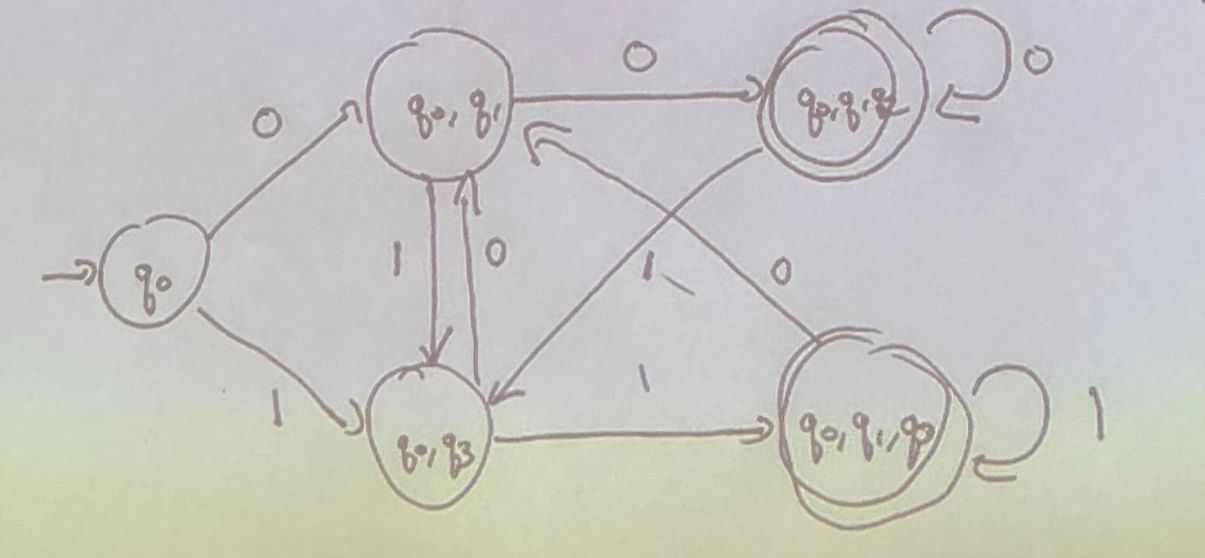 0
q0, q1
0
q0, q1, q2
0
q0
1
0
1
0
1
q0, q3
1
q0, q1, q3
1